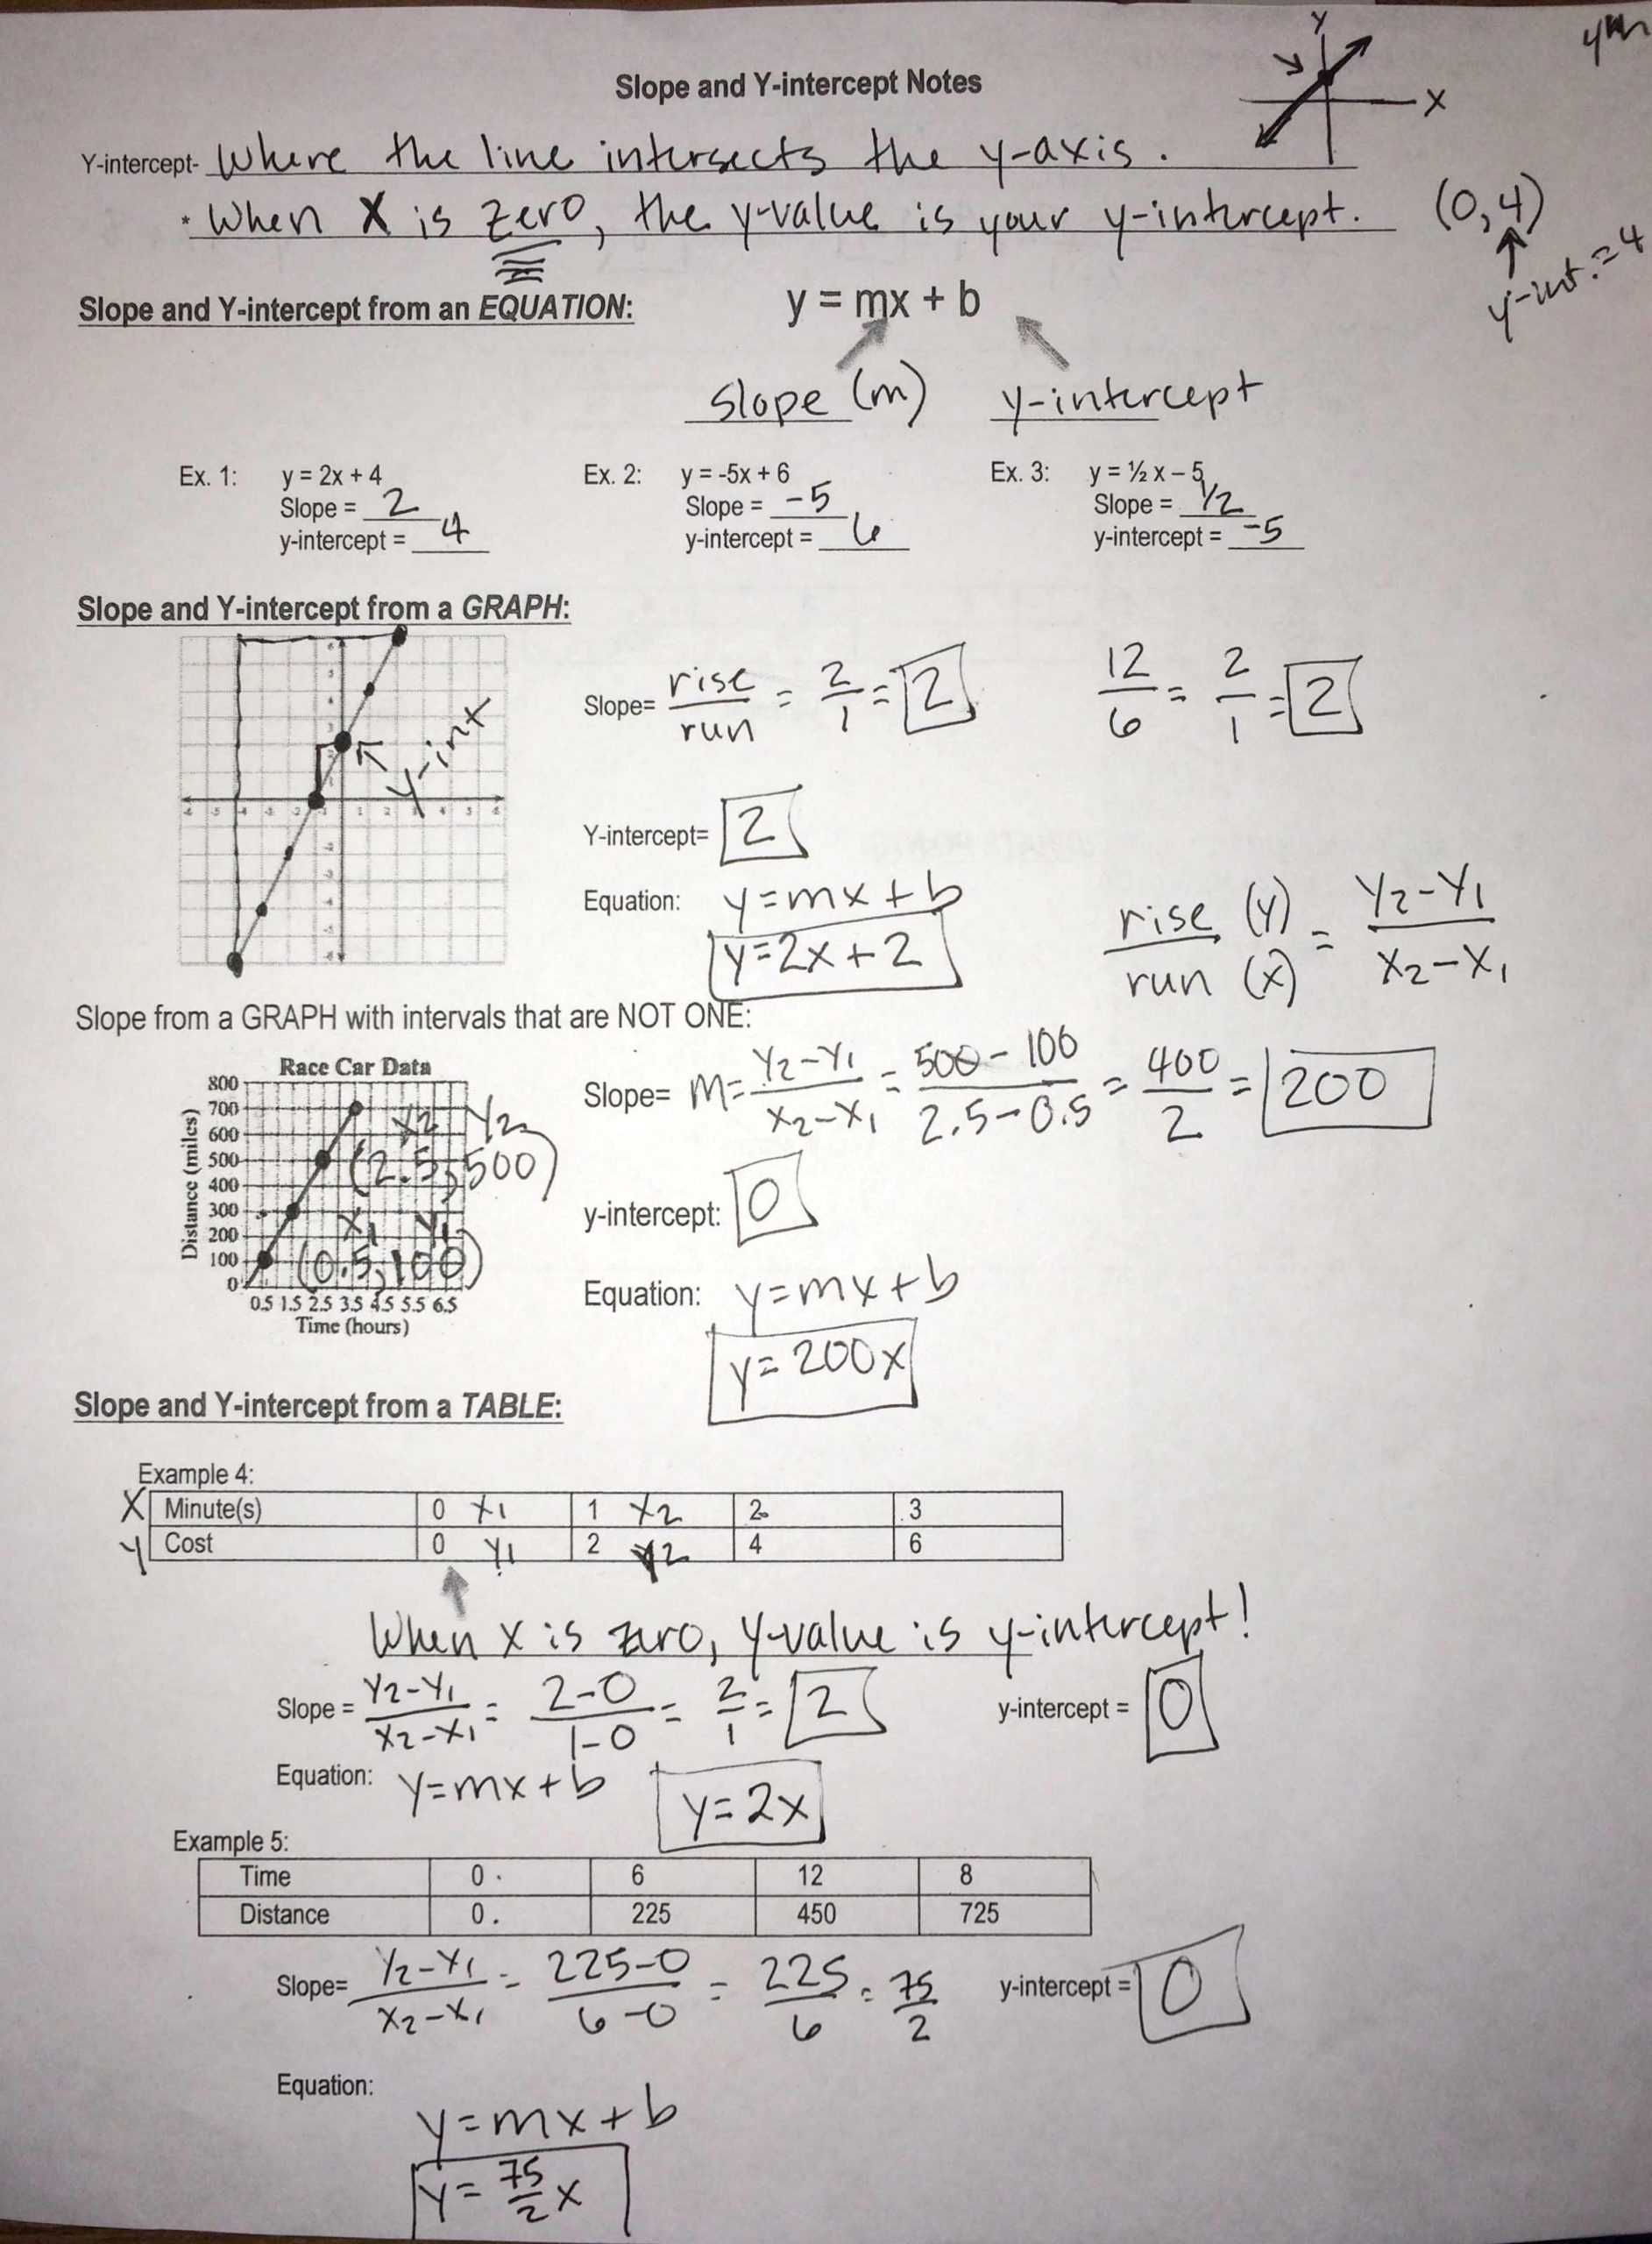 Slope and Y-intercept Notes
y
x
Y-intercept- Where the line intersects the y-axis.
* When X is zero, the y-value is your y-intercept. (0,4)
y-int.=4
Slope and Y-intercept from an EQUATION: y = mx + b
slope (m) y-intercept
Ex. 1: y = 2x + 4 Ex. 2: y = -5x + 6 Ex. 3: y = ½ x – 5
Slope = 2 Slope = -5 Slope = 1/2
y-intercept = 4 y-intercept = 6 y-intercept = -5
Slope and Y-intercept from a GRAPH:
y-inx
Slope= rise/run = 2/1 = 2 12/6 = 2/1 = 2
Y-intercept= 2
Equation: y=mx+b
y=2x+2
rise (y)/run (x) = Y2-Y1/X2-X1
Slope from a GRAPH with intervals that are NOT ONE:
Race Car Data
Distance (miles)
800
700
600
500
400
300
200
100
0
X2 Y2
(2.5, 500)
X1 Y1
(0.5, 100)
0.5 1.5 2.5 3.5 4.5 5.5 6.5
Time (hours)
Slope= M= Y2-Y1/X2-X1 = 500-100/2.5-0.5 = 400/2 = 200
y-intercept: 0
Equation: y=mx+b
y=200x
Slope and Y-intercept from a TABLE:
Example 4:
X Minute(s) 0 X1 1 X2 2 3
Y Cost 0 Y1 2 Y2 4 6
When x is zero, y-value is y-intercept!
Slope = Y2-Y1/X2-X1 = 2-0/1-0 = 2/1 = 2 y-intercept = 0
Equation: y=mx+b y=2x
Example 5:
Time 0 6 12 8
Distance 0 225 450 725
Slope= Y2-Y1/X2-X1 = 225-0/6-0 = 225/6 = 75/2 y-intercept = 0
Equation:
y=mx+b
y=75/2x